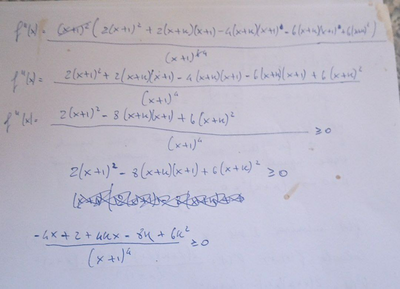 f''(x) = (x+1)²(2(x+1)² + 2(x+k)(x+1) - 4(x+k)(x+1) - 6(x+k)(x+1) + 6(x+k)²) / (x+1)
f''(x) = 2(x+1)² + 2(x+k)(x+1) - 4(x+k)(x+1) - 6(x+k)(x+1) + 6(x+k)² / (x+1)⁴
f''(x) = 2(x+1)² - 8(x+k)(x+1) + 6(x+k)² / (x+1)⁴ ≥ 0
2(x+1)² - 8(x+k)(x+1) + 6(x+k)² ≥ 0
-4x + 2 + 4kx - 8k + 6k² / (x+1)⁴ ≥ 0